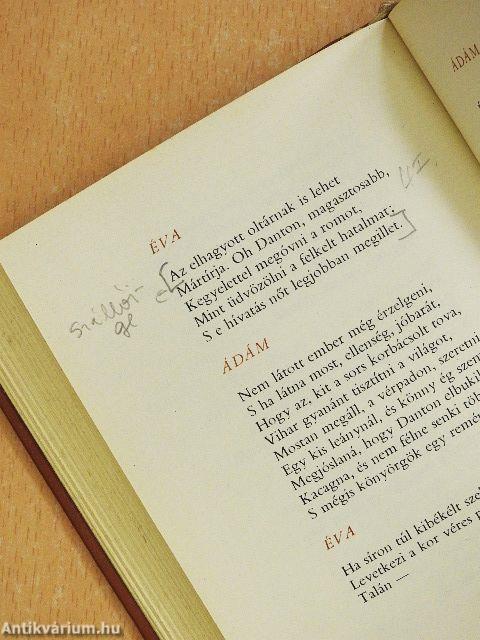 ÁDÁM
ÉVA
Az elhagyott oltárnak is lehet
Mártírja. Oh Danton, magasztosabb,
Kegyelettel megóvni a romot,
Mint üdvözölni a felkelt hatalmat;
S e hívatás nőt legjobban megillet.
Szállói-
ge
ÁDÁM
Nem látott ember még érzelgeni,
S ha látna most, ellenség, jóbarát,
Hogy az, kit a sors korbácsolt tova,
Vihar gyanánt tisztítni a világot,
Mostan megáll, a vérpadon, szeretni
Egy kis leánynál, és könny ég szem
Megjóslaná, hogy Danton elbukik
Kacagna, és nem félne senki töb
S mégis könyörgök egy remé
ÉVA
Ha síron túl kibékült sze
Levetkezi a kor véres p
Talán —
Antikvárium.hu